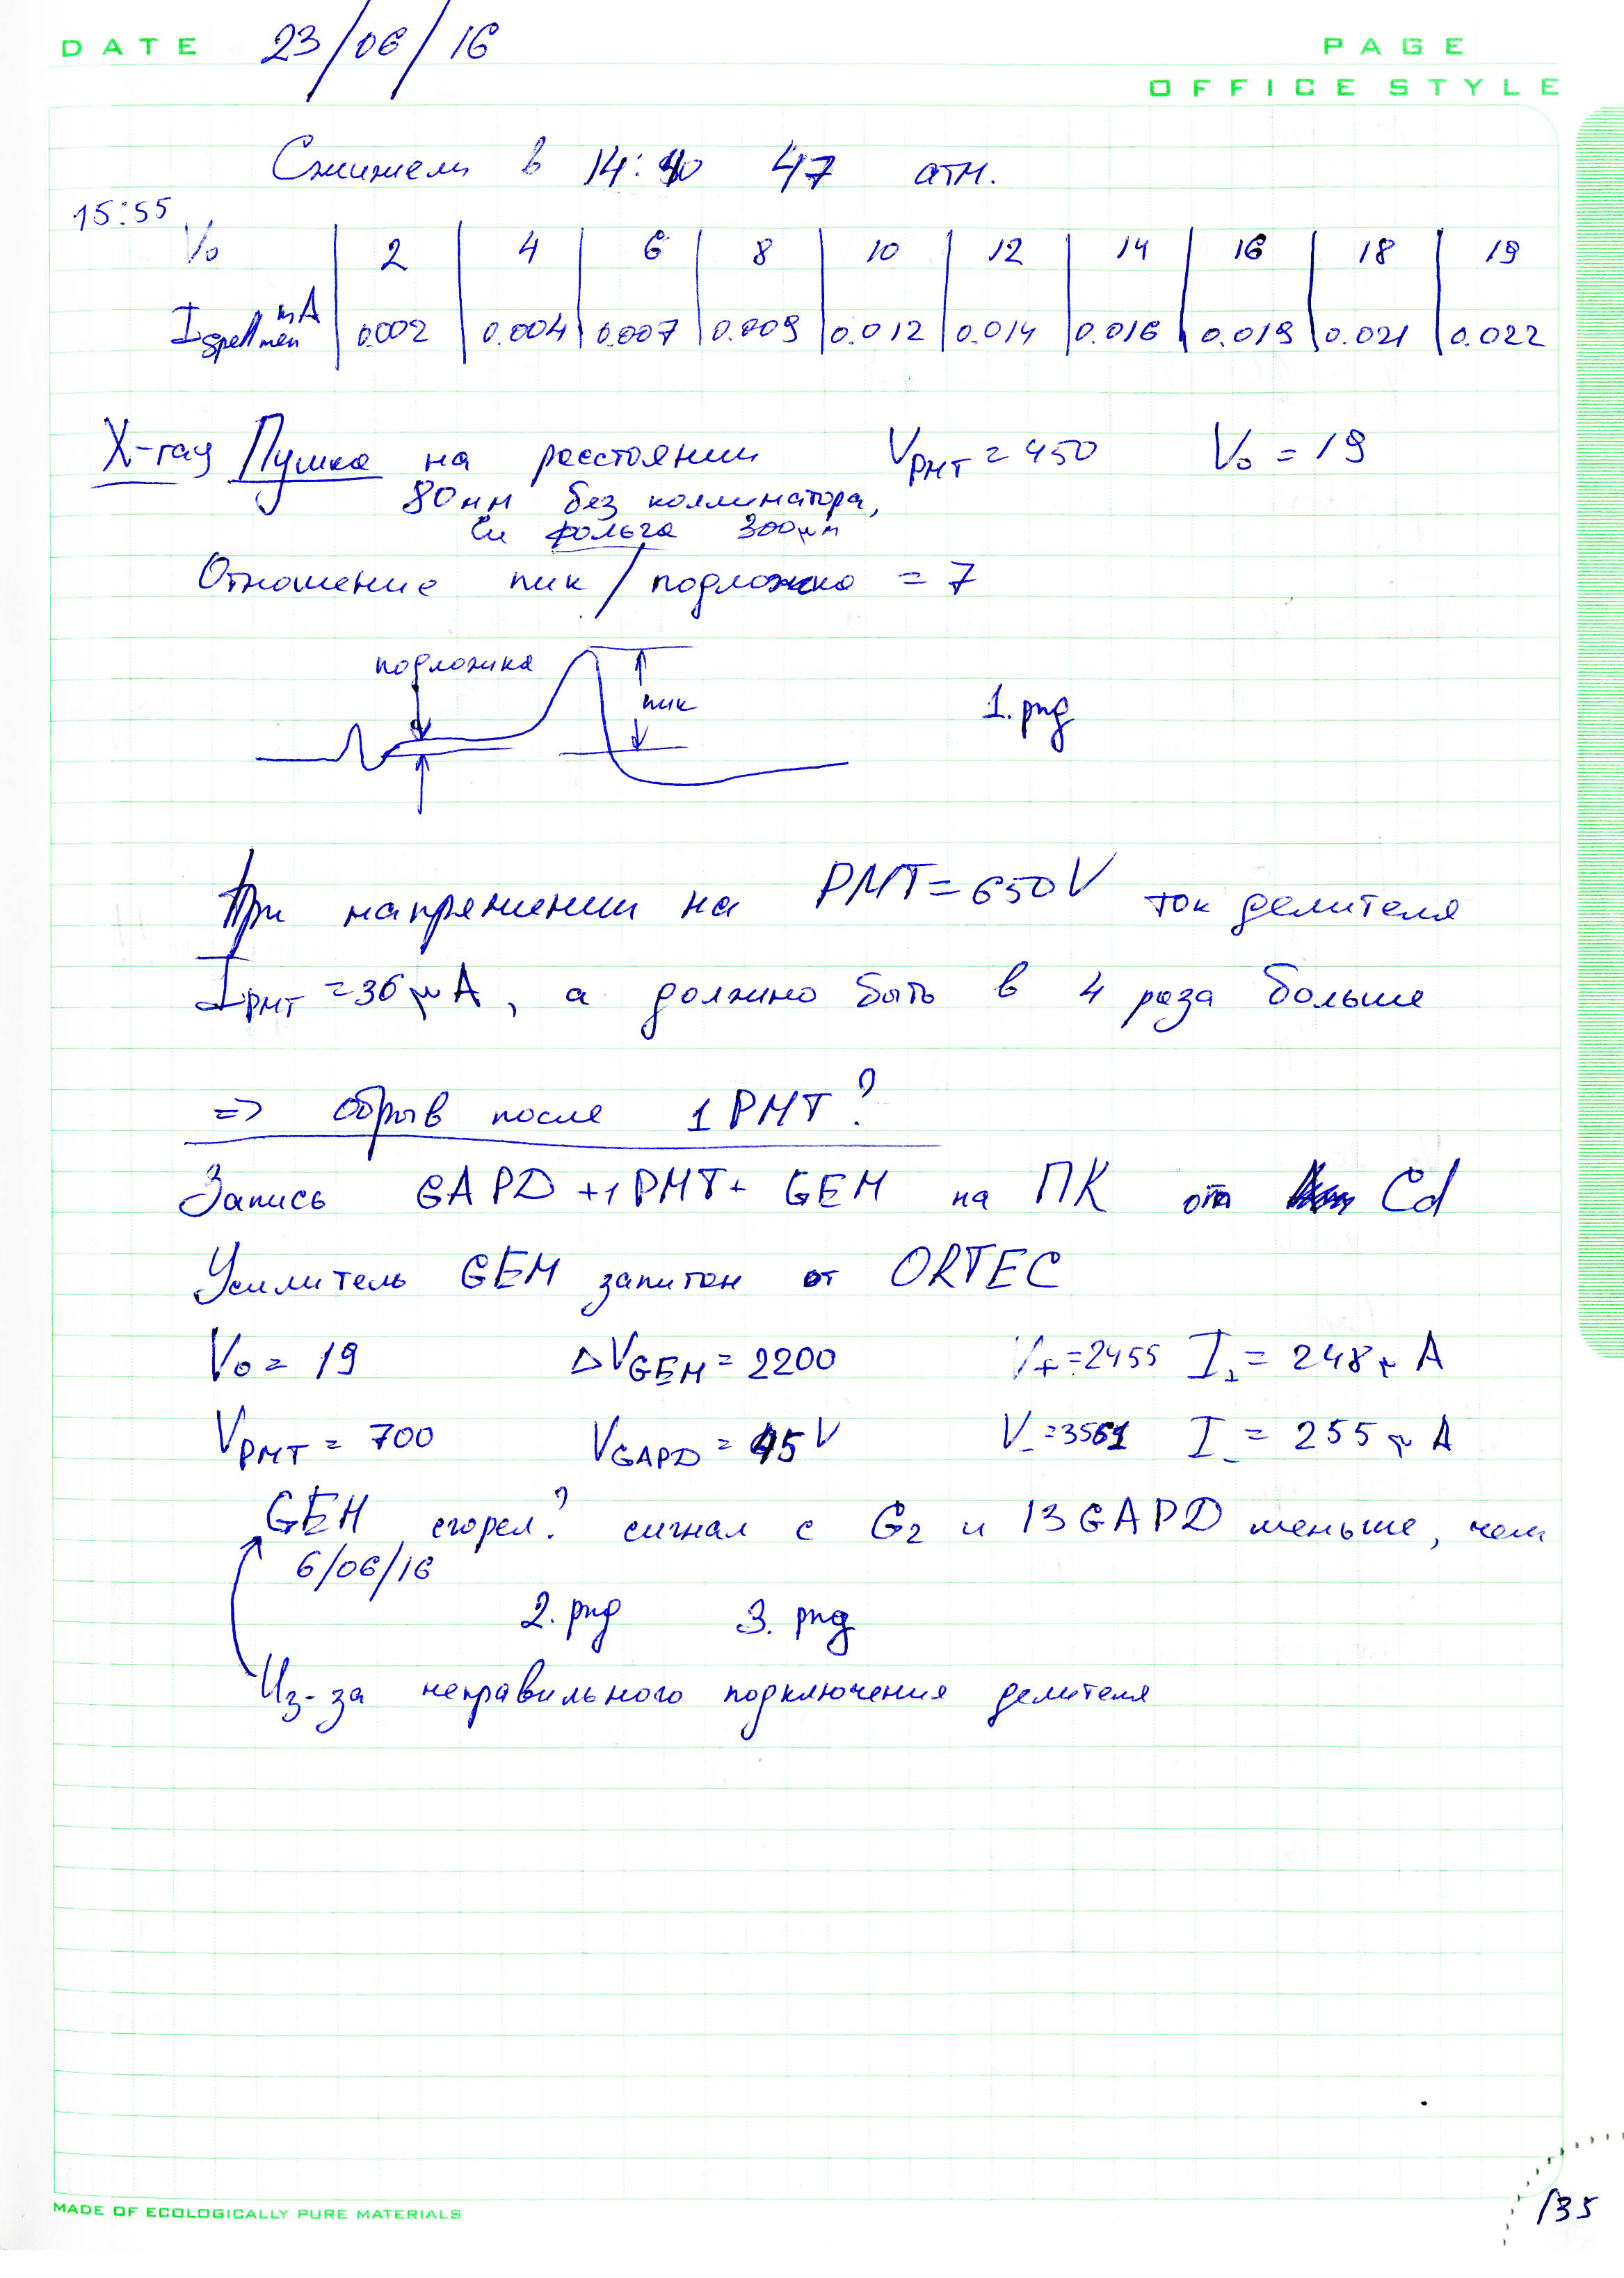 DATE 23/06/16 PAGE
OFFICE STYLE
Сжижели в 14:40 47 атм.
15:55
V₀ | 2 | 4 | 6 | 8 | 10 | 12 | 14 | 16 | 18 | 19
I spellmen mA | 0.002 | 0.004 | 0.007 | 0.009 | 0.012 | 0.014 | 0.016 | 0.019 | 0.021 | 0.022
X-ray Пушка на расстоянии V PMT = 450 V₀ = 19
80мм без коллиматора,
фольга 300μm
Отношение пик/подложка = 7
подложка
пик
1. png
При напряжении на PMT = 650V ток делителя
I PMT = 36 μA, а должно быть в 4 раза больше
=> обрыв после 1 PMT?
Запись GAPD + 1PMT + GEM на ПК от Cd
Усилитель GEM запитан от ORTEC
V₀ = 19 ΔV GEM = 2200 V+ = 2455 I+ = 248 μA
V PMT = 700 V GAPD = 45 V V- = 3561 I- = 255 μA
GEM сгорел? сигнал с G2 и 13GAPD меньше, чем
6/06/16
2. png 3. png
Из-за неправильного подключения делителя
MADE OF ECOLOGICALLY PURE MATERIALS
135